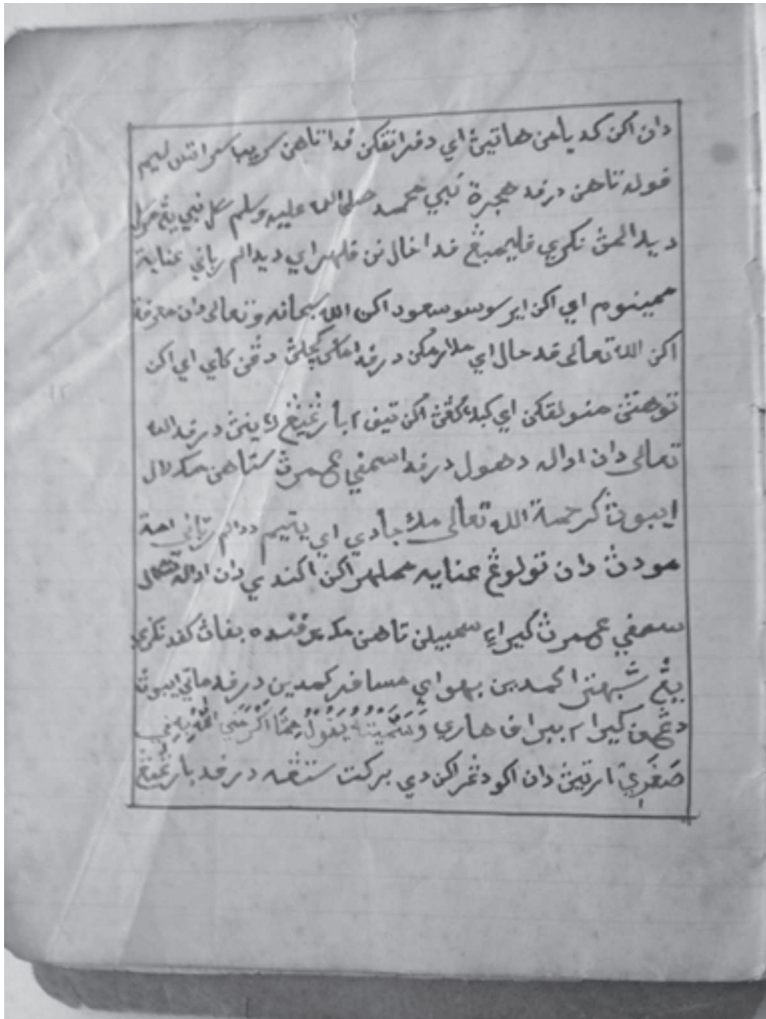 دان اكن كديامن هاتيڽ اي دفراتفكن فد تاهن سريب سراتس ليم
فوله تاهن درفد هجرة نبي محمد صلى الله عليه وسلم سكل نبي يڠ مرسل
ديدالمڽ نكري فليمبڠ فد احال فن فلهراي ديدالم عناية
ممينوم اي اكن اير سوسو سعود اكن الله سبحانه وتعالى دان معرفة
اكن الله تعالى فد حال اي ملازمكن درفد كچلڽ دڠن اي اكن
توهنڽ منولقكن اي اكن تيف٢ بارڠيڠ لاينڽ درفد الله
تعالى دان اداله دهول درفد اسمفي عمرڽ ستاهن مك
ايبوڽ كرحمة الله تعالى مك جادي اي يتيم دالم
مودڽ دان تولوڠ عنايه مملهر اكن اكندي دان اداله تتكال
سمفي عمرڽ كيرا٢ سمبيلن تاهن مك برفنده بفاڽ كفد نكري
يڠ كمدين بهو اي مسافر كمدين درفد ماتي ايبوڽ
دڠن كيرا٢ ببراف هاري وسمعته يقول مما اكرمني الله به في
صغري ارتيڽ دان اكو دڠر اكندي بركت ستڠه درفد بارڠيڠ